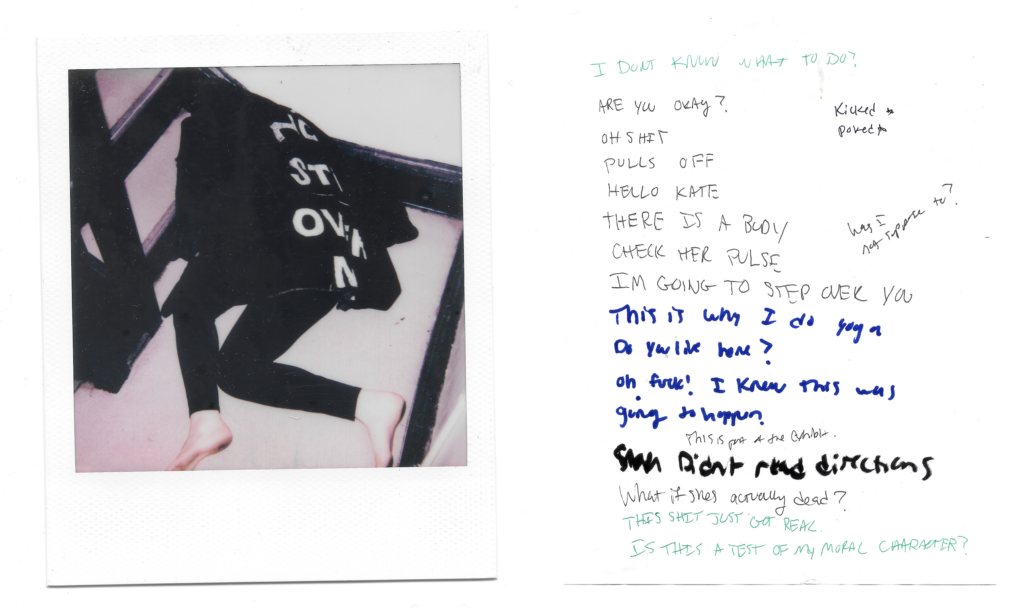 ST
OV
N
I DONT KNOW WHAT TO DO?
ARE YOU OKAY?
Kicked
poked
OH SHIT
PULLS OFF
HELLO KATE
THERE IS A BODY
was I
not suppose to?
CHECK HER PULSE
IM GOING TO STEP OVER YOU
This is why I do yoga
Do you live here?
oh fuck! I knew this was
going to happen
This is part of the exhibit.
Didnt read directions
What if shes actually dead?
THIS SHIT JUST GOT REAL.
IS THIS A TEST OF MY MORAL CHARACTER?